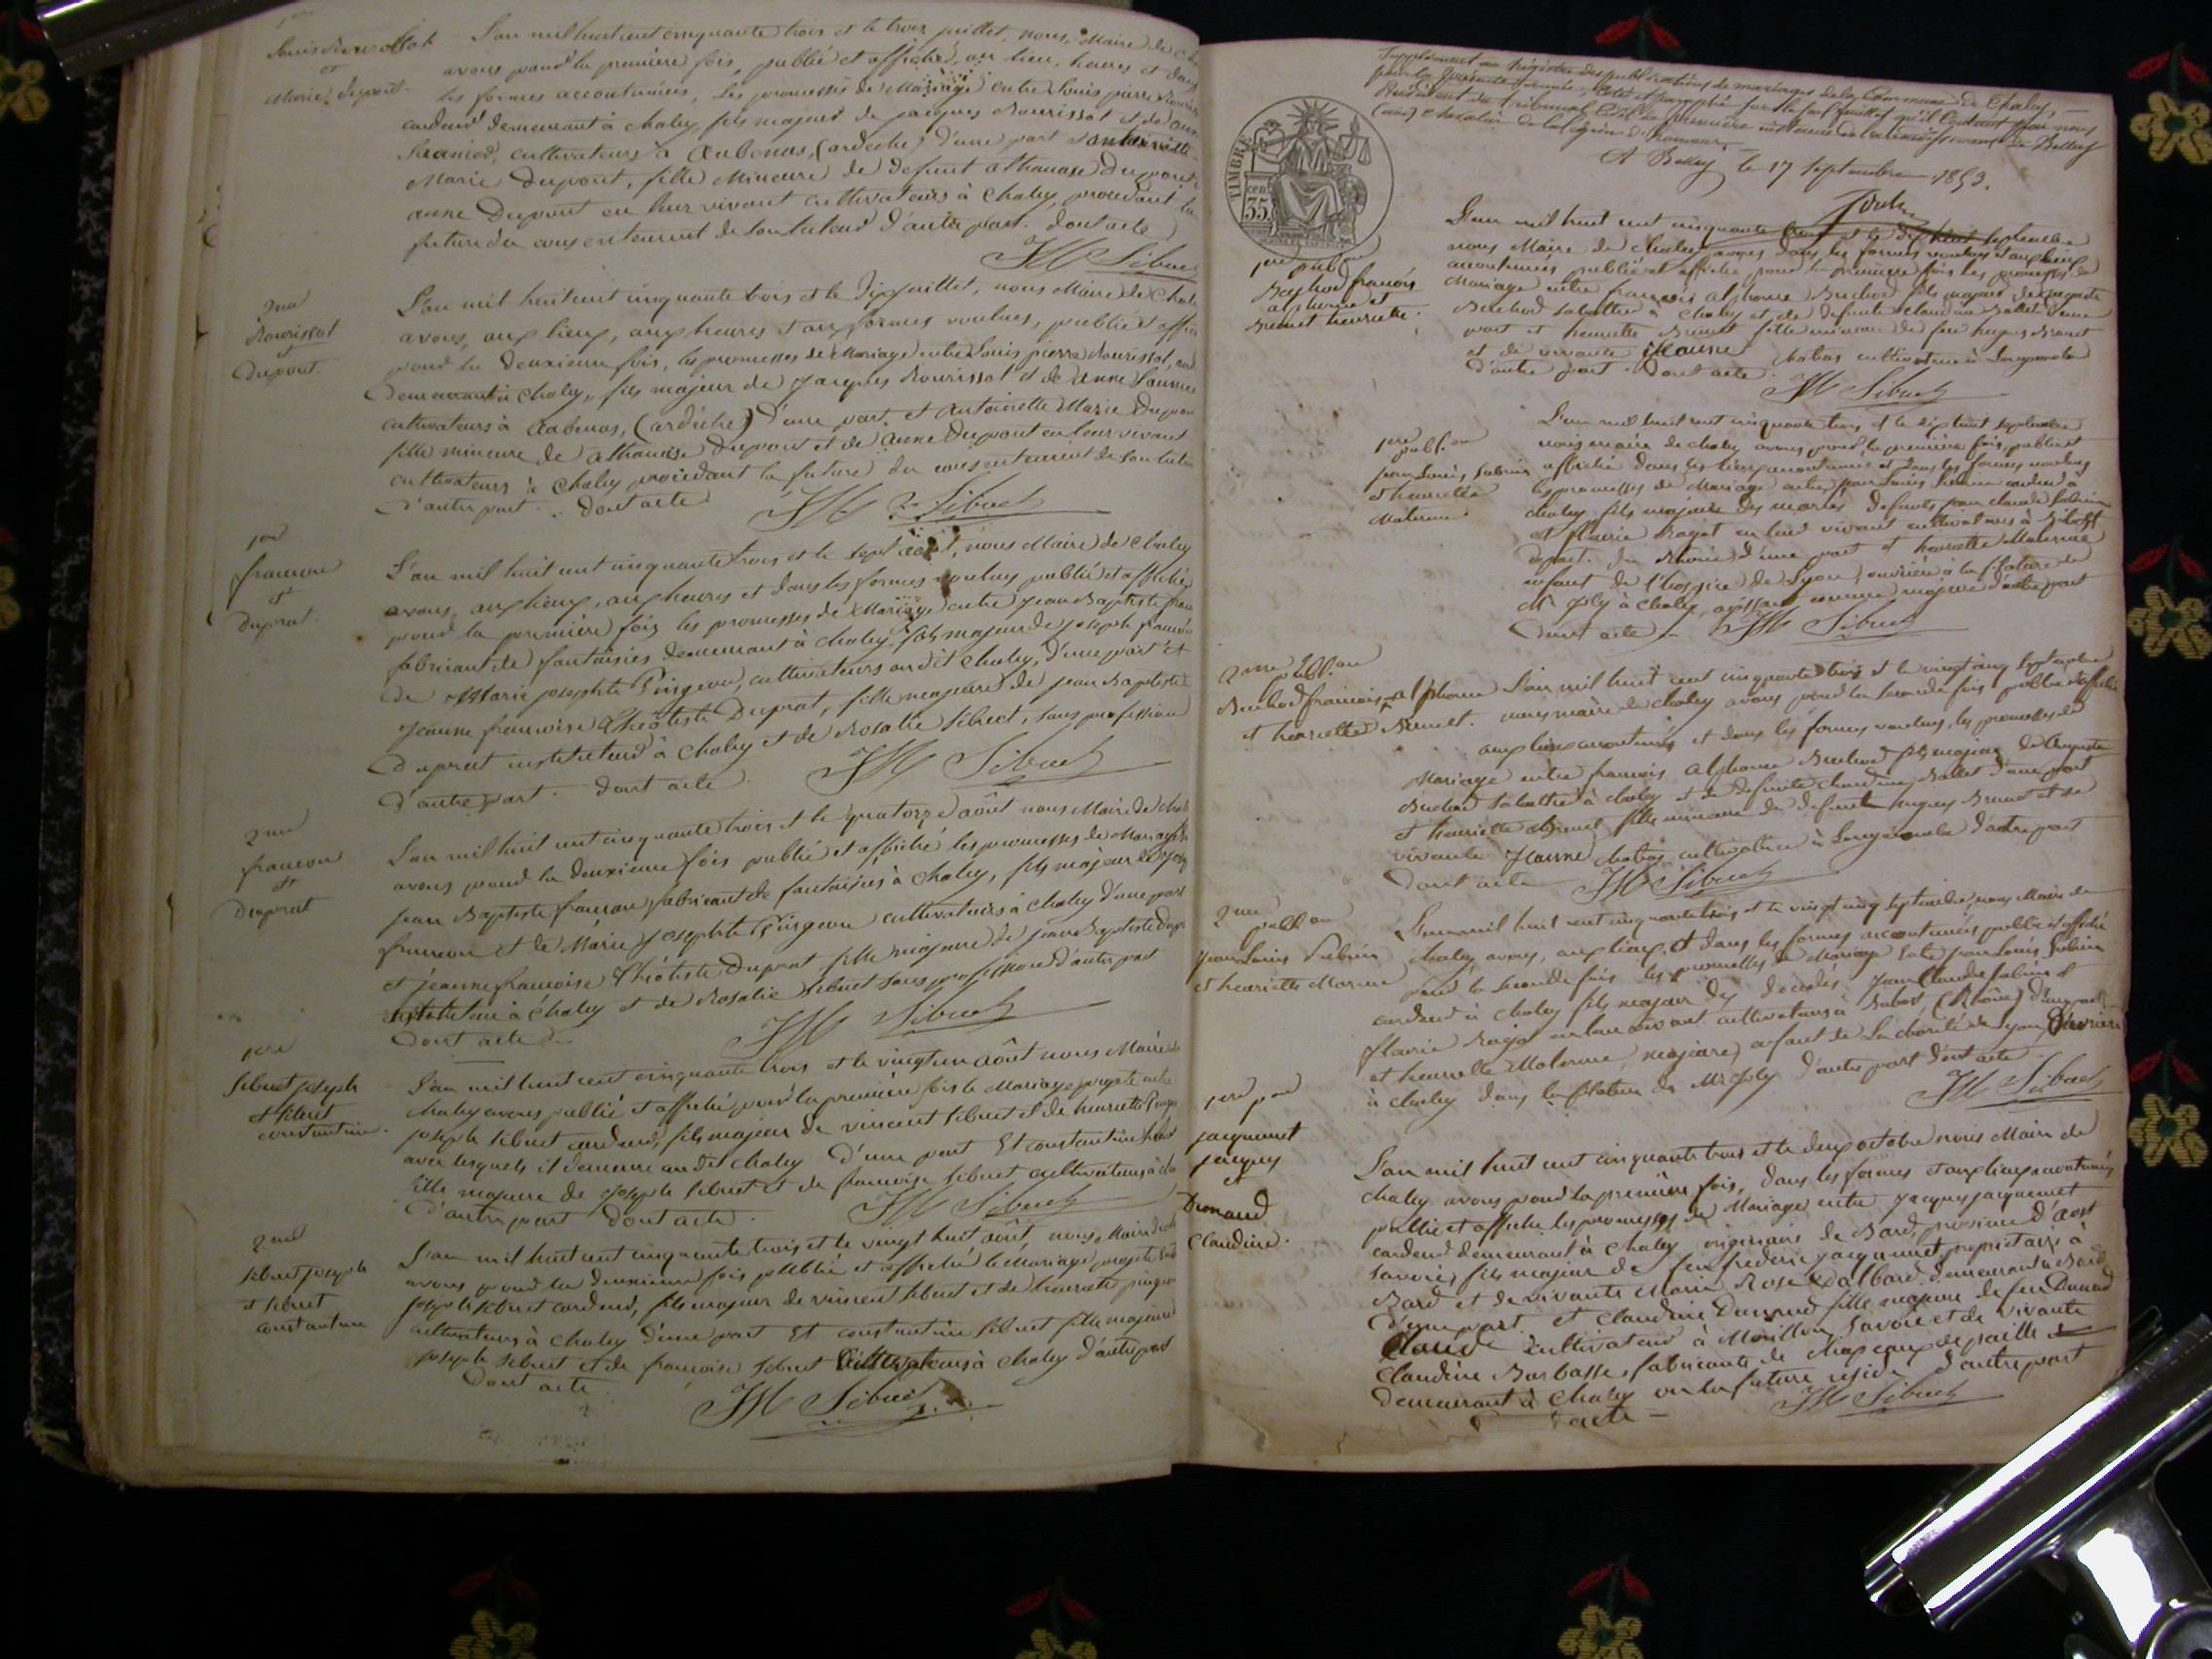 1ere
Louis Pierre
et
Marie Dupont.
L'an mil huit cent cinquante trois et le trois juillet, nous, Maire de
avons pour la première fois, publié et affiché, au lieu, heures et dans
les formes accoutumées, les promesses de Mariage entre Louis pierre
cardeur demeurant à chaley fils majeur de jacques Rourissol et de anne
Saunier, cultivateurs à Aubenas, (ardèche) d'une part et antoinette
Marie Dupont, fille Mineure de defunt athanase Dupont
anne Dupont en leur vivant cultivateurs à Chaley, procédant la
future du consentement de son tuteur d'autre part. dont acte
JM Sibuet
2me
Rourissol
et
Dupont.
L'an mil huit cent cinquante trois et le dix juillet, nous Maire de Chaley
avons, aux lieux, aux heures et aux formes voulues, publié et affiché
pour la deuxieme fois, les promesses de Mariage entre Louis pierre Rourissol,
Demeurant à Chaley, fils majeur de jacques Rourissol et de anne Saunier
cultivateurs à Aubenas, (ardèche) d'une part, et Antoinette Marie Dupont
fille mineure de athanase Dupont et de anne Dupont en leur vivant
cultivateurs à Chaley procédant la future du consentement de son tuteur
d'autre part. Dont acte
JM Sibuet
1ere
francon
et
Duprat.
L'an mil huit cent cinquante trois et le sept août, nous Maire de Chaley
avons, aux lieux, aux heures et dans les formes voulues publié et affiché
pour la première fois les promesses de Mariage entre jean Baptiste
fabricant de fantaisies demeurant à chaley, fils majeur de joseph francon
de Marie josephte Pingeon, cultivateurs au dit Chaley, d'une part et
jeanne francoise Théotiste Duprat, fille majeure de jean Baptiste
Duprat instituteur à Chaley et de Rosalie Sibuet, sans profession
d'autre part. Dont acte
JM Sibuet
2me
francon
et
Duprat
L'an mil huit cent cinquante trois et le quatorze août nous Maire de
avons pour la deuxieme fois publié et affiché les promesses de Mariage
jean Baptiste francon fabricant de fantaisies à Chaley, fils majeur de
francon et de Marie josephte Pingeon cultivateurs à Chaley d'une part
et jeanne francoise Théotiste Duprat fille majeure de jean Baptiste
instituteur à Chaley et de Rosalie Sibuet sans profession d'autre part
Dont acte
JM Sibuet
1ere
Sibuet joseph
et Sibuet
constantine.
L'an mil huit cent cinquante trois et le vingt un août nous Maire de
Chaley avons publié et affiché pour la première fois le Mariage projeté entre
joseph Sibuet cardeur, fils majeur de vincent Sibuet et de henriette
avec lesquels il demeure au dit Chaley d'une part Et constantine
fille majeure de joseph Sibuet et de francoise Sibuet cultivateurs à
d'autre part Dont acte.
JM Sibuet
2me
Sibuet joseph
et Sibuet
constantine
L'an mil huit cent cinquante trois et le vingt huit août, nous Maire de
avons pour la deuxieme fois publié et affiché le Mariage projeté
joseph Sibuet cardeur, fils majeur de vincent Sibuet et de henriette
cultivateurs à Chaley d'une part Et constantine Sibuet fille majeure
joseph Sibuet et de francoise Sibuet Cultivateurs à Chaley d'autre part
Dont acte.
JM Sibuet
Supplément au Régistre des publications de mariages de la Commune de Chaley,
pour la présente année, Coté et paraphé sur le seul feuillet qu'il Contient par nous
Président du Tribunal Civil de première instance de l'arrondissement de Belley
(ain) Chevalier de la légion d'honneur,
A Belley le 17 Septembre 1853.
TIMBRE
35
1ere publon
françois
alphonse et
Brunet henriette.
L'an mil huit cent cinquante trois et le dix huit Septembre
nous Maire de Chaley avons dans les formes voulues et aux lieux
accoutumés publié et affiché pour la première fois les promesses de
Mariage entre françois alphonse fils majeur de auguste
à Chaley et de defunte claudine Ballet d'une
part et henriette Brunet fille mineure de feu hugues Brunet
et de vivante jeanne Chabas cultivatrice à
d'autre part. Dont acte.
JM Sibuet
1ere
publ.on
jean Louis
et henriette
Materme
L'an mil huit cent cinquante trois et le dix huit septembre
nous maire de chaley avons pour la première fois publié et
affiché dans les lieux accoutumés et dans les formes voulues
les promesses de Mariage entre jean Louis cardeur à
Chaley fils majeur des mariés defunts jean claude
et flavie Ragot en leur vivant cultivateurs à
depart. du Rhône d'une part et henriette Materme
enfant de l'hospice de Lyon, ouvrière à la filature de
Mr Joly à Chaley, agissant comme majeure d'autre part
Dont acte
JM Sibuet
2me publ.on
françois alphonse
et henriette Brunet.
L'an mil huit cent cinquante trois et le vingt cinq septembre
nous maire de chaley avons pour la seconde fois publié et affiché
aux lieux accoutumés et dans les formes voulues, les promesses de
Mariage entre francois alphonse fils majeur de auguste
à chaley et de defunte claudine Ballet d'une part
et henriette Brunet fille mineure de defunt hugues Brunet et de
vivante jeanne Chabas cultivatrice à d'autre part
Dont acte
JM Sibuet
2me
publ on
jean Louis
et henriette
L'an mil huit cent cinquante trois et le vingt cinq septembre, nous Maire de
chaley, avons, aux lieux, et dans les formes accoutumées, publié et affiché
pour la seconde fois les promesses de Mariage entre jean Louis
cardeur à Chaley fils majeur des décédés jean Claude et
flavie Ragot en leur vivant cultivateurs à (Rhône) d'une part
et henriette Materme, majeure, enfant de la charité de Lyon, Ouvrière
à Chaley dans la filature de Mr Joly d'autre part dont acte
JM Sibuet
1ere pon
jacquemet
jacques
et
Dunand
Claudine.
L'an mil huit cent cinquante trois et le deux octobre nous Maire de
Chaley avons pour la première fois, dans les formes et aux lieux accoutumés
publié et affiché les promesses de Mariage entre jacques jacquemet
cardeur demeurant à Chaley originaire de Bard, province d'aost
Savoie, fils majeur de feu frederic jacquemet, proprietaire à
Bard et de vivante Marie Rose Dalbard demeurant à Bard
d'une part. et Claudine Dunand fille majeure de feu Dunand
Claude cultivateur à Morillon, Savoie et de vivante
Claudine Barbasse, fabricante de chapeaux de paille
demeurant à Chaley ou la future réside d'autre part
acte
JM Sibuet